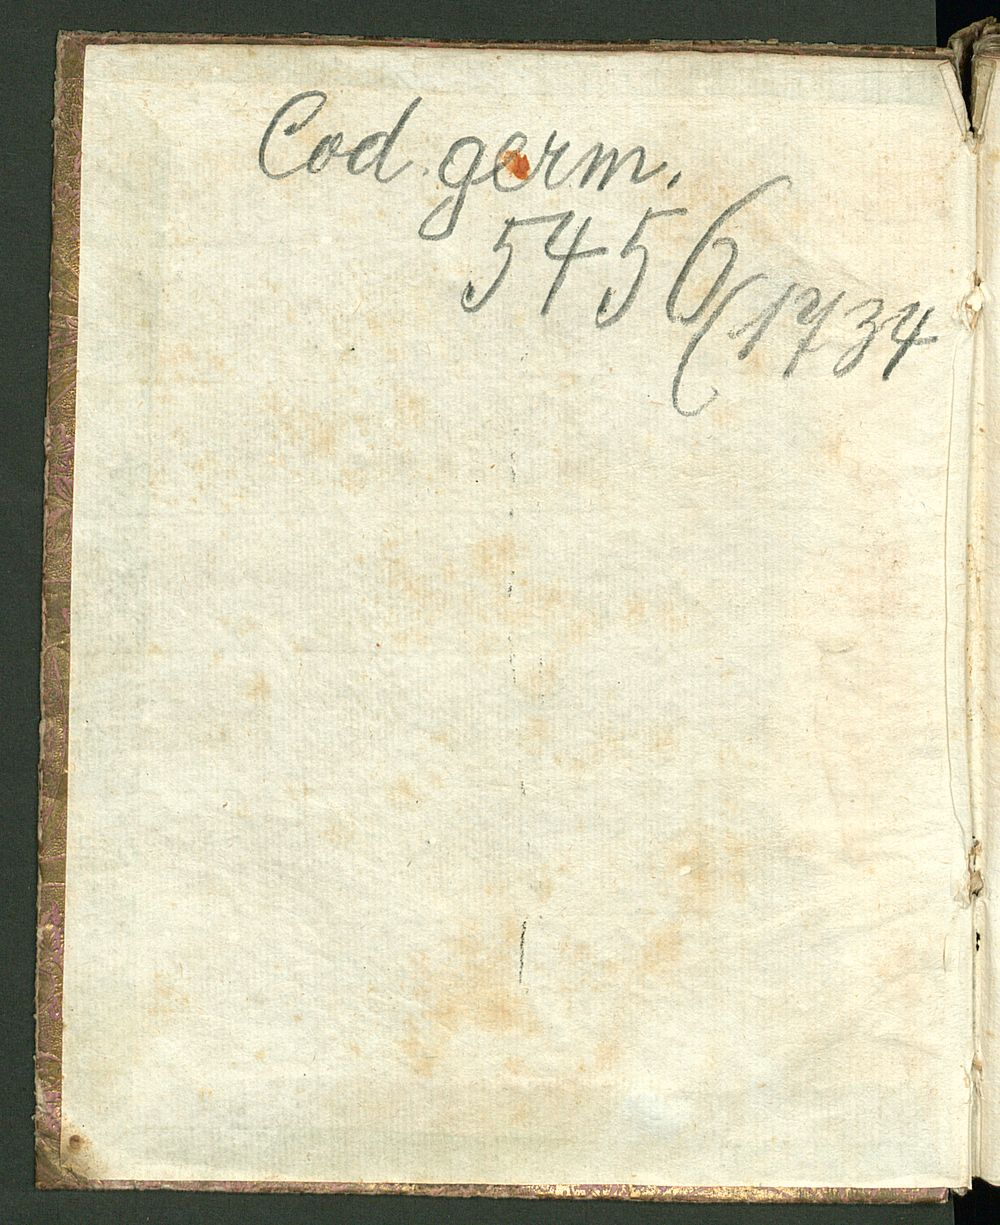 Cod. germ.
5456(1734